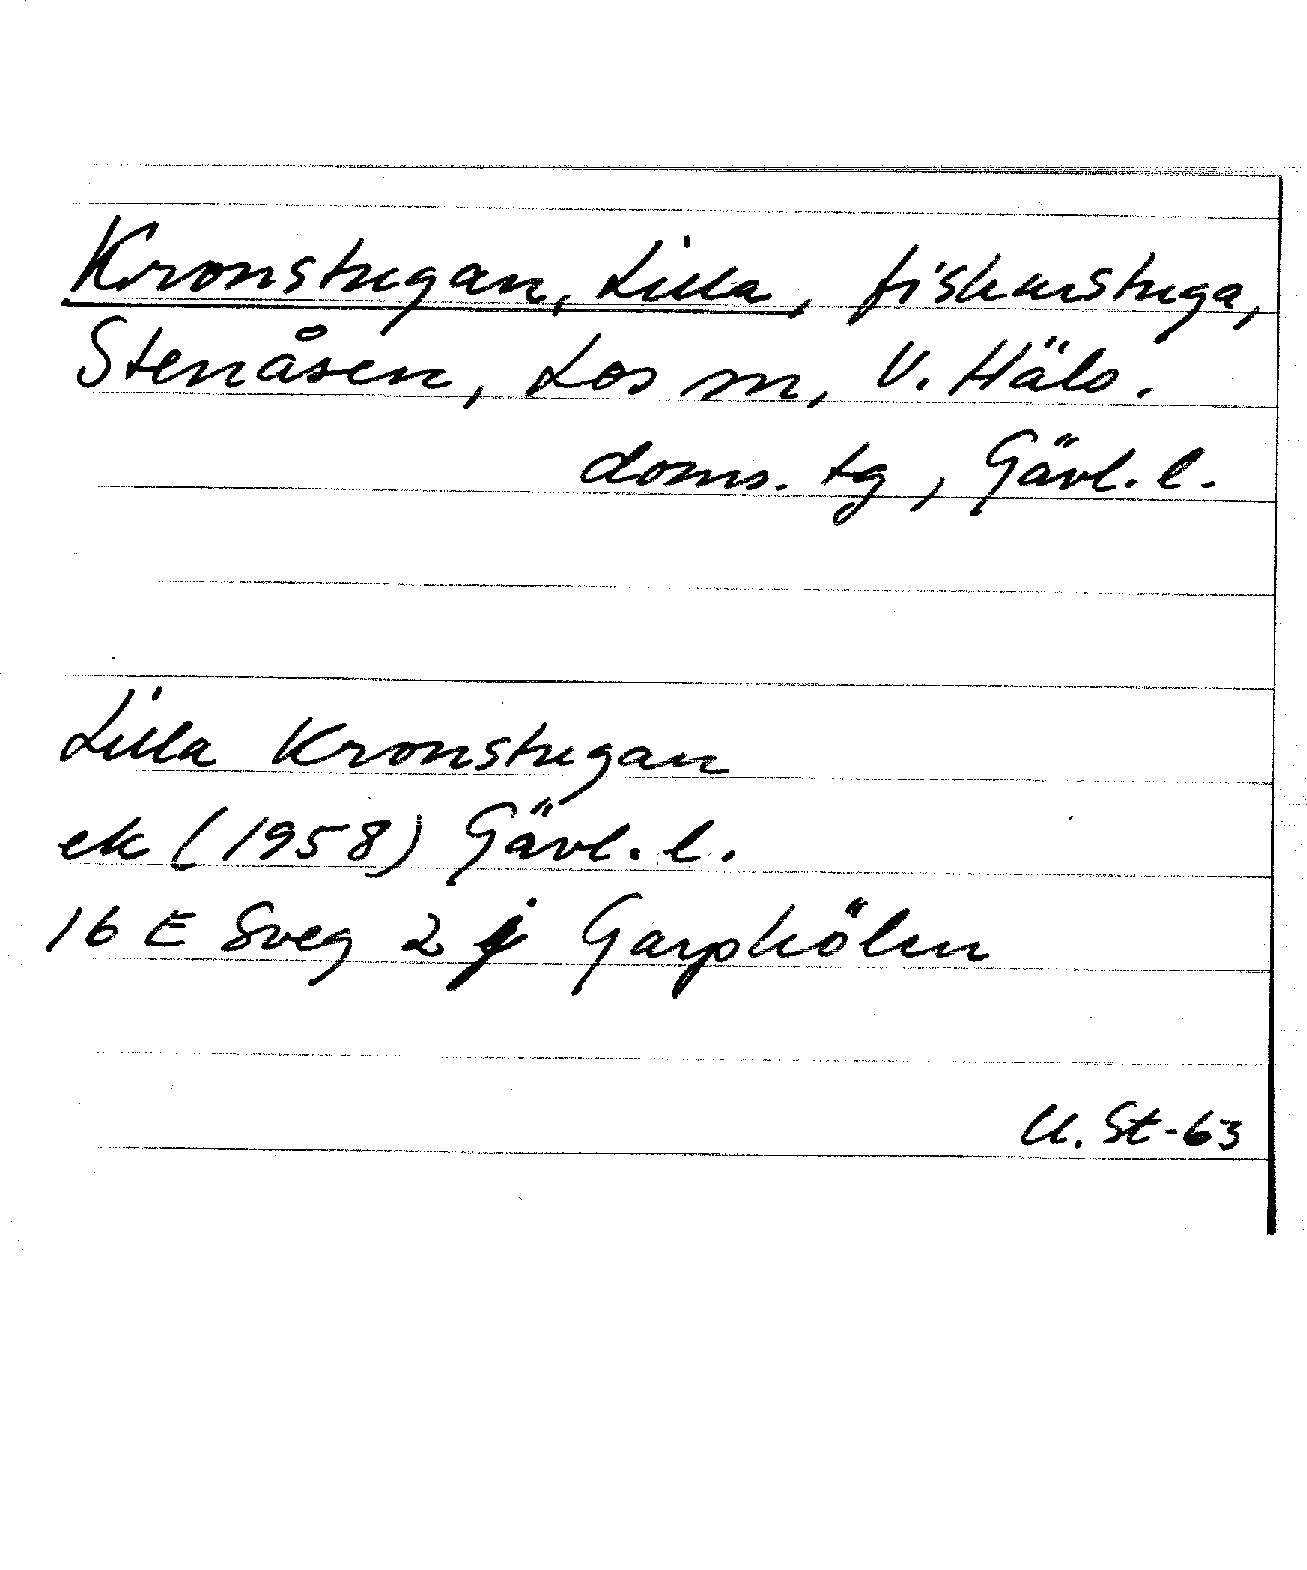 Kronstugan, Lilla, fiskarstuga,
Stenåsen, Los sn, V. Häls.
doms. tg, Gävl. l.
Lilla Kronstugan
ek (1958) Gävl. l.
16 E Sveg 2 j Garpkölen
U. St-63